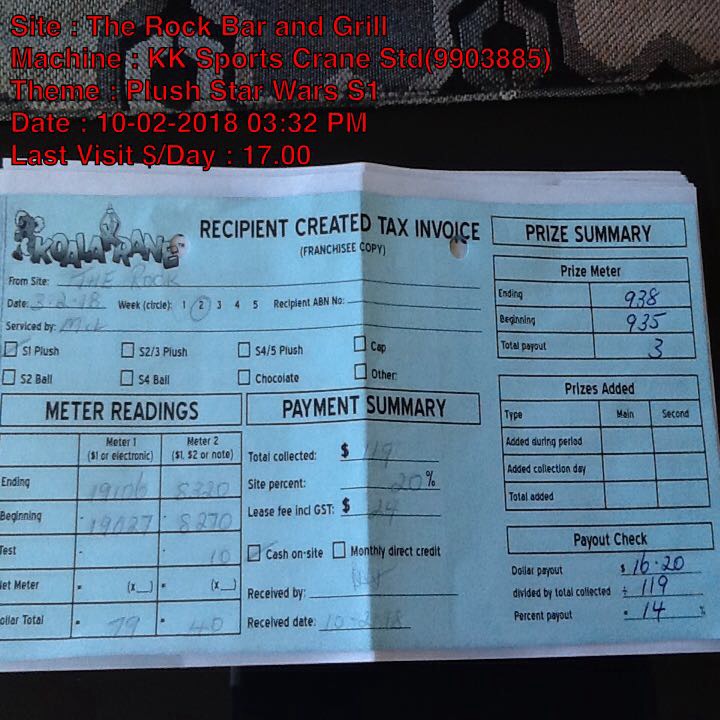 Site : The Rock Bar and Grill
Machine : KK Sports Crane Std(9903885)
Theme : Plush Star Wars S1
Date : 10-02-2018 03:32 PM
Last Visit $/Day : 17.00
KOALA KRANE
RECIPIENT CREATED TAX INVOICE
(FRANCHISEE COPY)
From Site: THE ROCK
Date: 3-2-18 Week (circle): 1 2 3 4 5 Recipient ABN No:
Serviced by: Mick
S1 Plush S2/3 Plush S4/5 Plush Cap
S2 Ball S4 Ball Chocolate Other:
METER READINGS
Meter 1 Meter 2
($1 or electronic) ($1, $2 or note)
Ending 19106 8320
Beginning - 19027 - 8270
Test - - 10
Net Meter = (x__) = (x__)
Dollar Total = 79 = 40
PAYMENT SUMMARY
Total collected: $ 119
Site percent: 20 %
Lease fee incl GST: $ 24
Cash on-site Monthly direct credit
Received by:
Received date: 10-2-18
PRIZE SUMMARY
Prize Meter
Ending 938
Beginning 935
Total payout 3
Prizes Added
Type Main Second
Added during period
Added collection day
Total added
Payout Check
Dollar payout $ 16.20
divided by total collected ÷ 119
Percent payout = 14 %